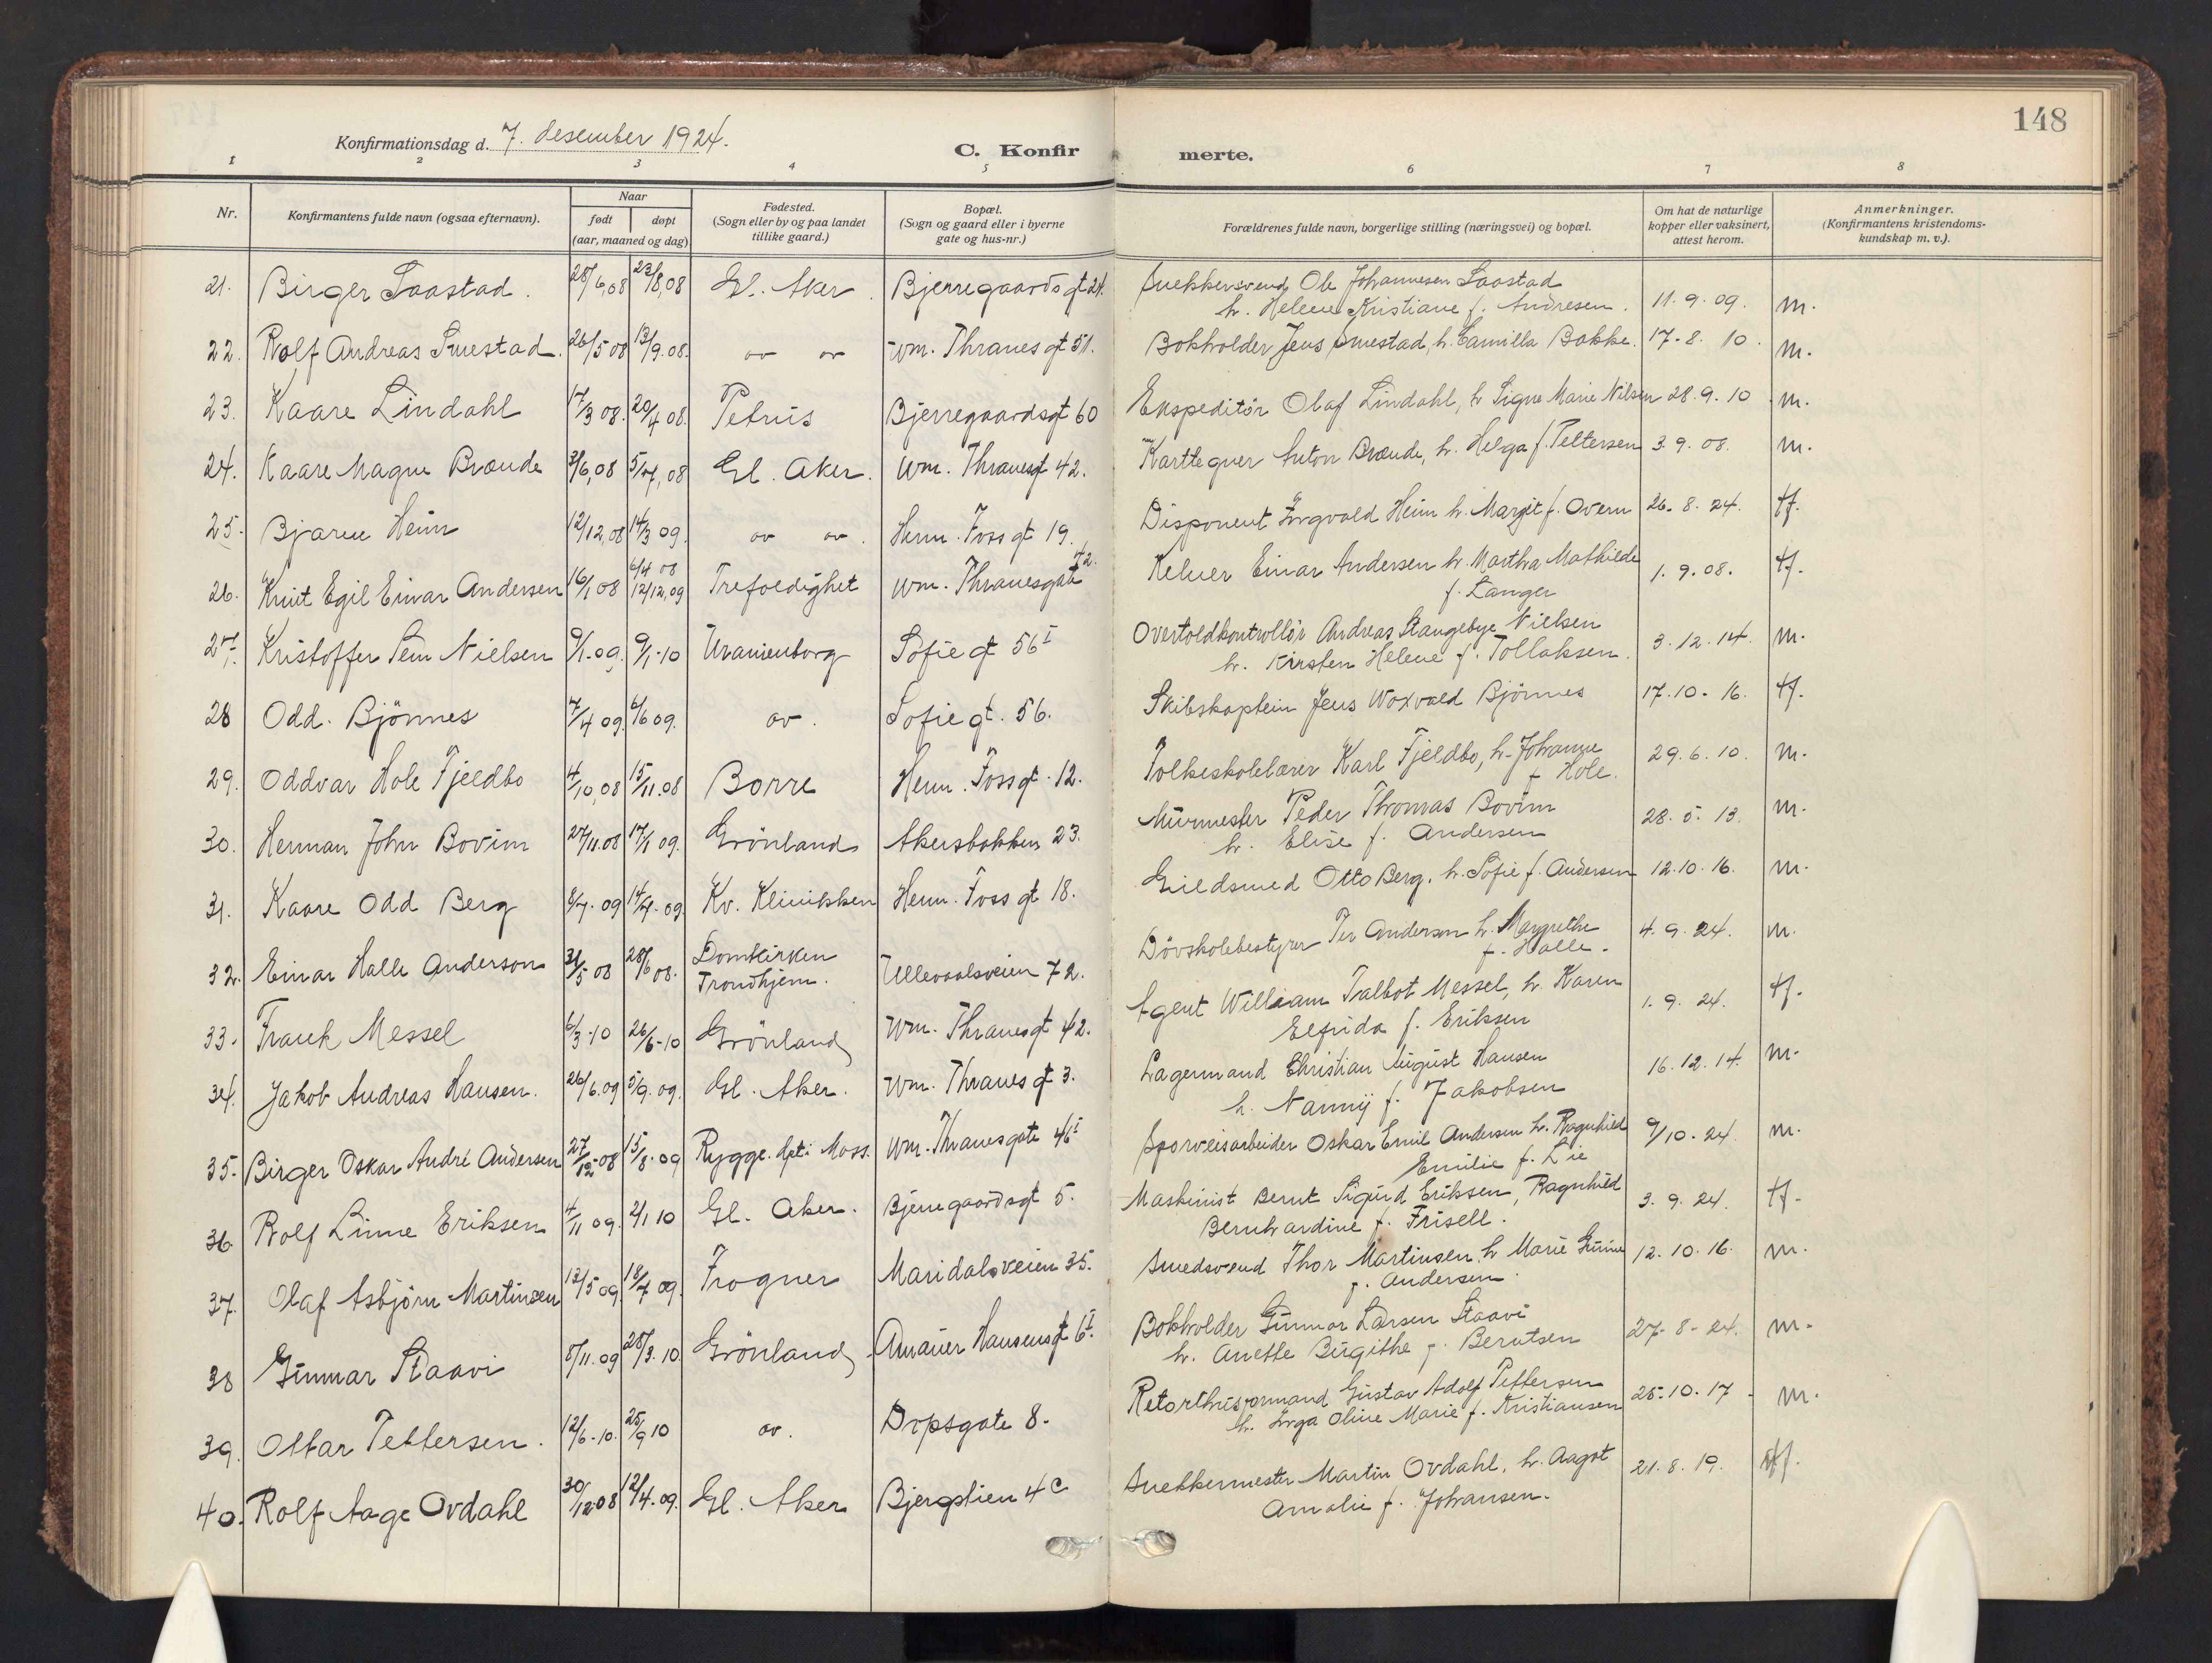 148
Konfirmationsdag d. 7. desember 1924.
C. Konfirmerte.
1 2 3 4 5 6 7 8
Nr.
Konfirmantens fulde navn (ogsaa efternavn).
Naar
født døpt
(aar, maaned og dag)
Fødested.
(Sogn eller by og paa landet
tillike gaard.)
Bopæl.
(Sogn og gaard eller i byerne
gate og hus-nr.)
Forældrenes fulde navn, borgerlige stilling (næringsvei) og bopæl.
Om hat de naturlige
kopper eller vaksinert,
attest herom.
Anmerkninger.
(Konfirmantens kristendoms-
kundskap m. v.).
21. Birger Saastad. 28/6,08 23/8,08 Gl. Aker. Bjerregaards gt 24. Snekkersvend Ole Johannesen Saastad 11.9.09. m.
h. Helene Kristiane f. Andresen.
22. Rolf Andreas Smestad. 26/5 08 13/9.08. av av Wm. Thranes gt 51. Bokholder Jens Smestad, h. Camilla Bakke. 17-8. 10. m.
23. Kaare Lindahl 17/3 08. 20/4 08. Petrus Bjerregaardsgt 60 Ekspeditör Olaf Lindahl, h. Signe Marie Nilsen 28.9.10 m.
24. Kaare Magne Brænde 3/6,08 5/7,08 Gl. Aker. Wm. Thranesgt 42. Karttegner Anton Brænde, h. Helga f. Pettersen 3.9.08. m.
25. Bjarne Heim 12/12,08 14/3 09. av av. Herm. Foss gt 19. Disponent Ingvald Heim h. Margit f. Overn 26.8.24. tf.
26. Knut Egil Einar Andersen 16/1 08 6/4 08 12/12,09 Trefoldighet Wm. Thranesgate 42. Kelner Einar Andersen h. Martha Mathilde 1.9.08. tf.
f. Langer
27. Kristoffer Sem Nielsen 9/1-09. 9/1-10 Uranienborg Sofie gt 56 I Overtoldkontrollör Andreas Stangebye Nielsen 3.12.14. m.
h. Kirsten Helene f. Tollaksen.
28 Odd. Bjönnes 7/4 09 6/6 09. av. Sofie gt. 56. Skibskaptein Jens Woxvald Bjönnes 17.10-16. tf.
29. Oddvar Hole Fjeldbo 4/10,08 15/11.08 Borre Herm. Foss gt. 12. Folkeskolelærer Karl Fjeldbo, h. Johanne 29.6.10. m.
f Hole.
30. Herman John Bovim 27/11.08 17/1 09. Grönland Akersbakken 23. Murmester Peder Thomas Bovim 28.5.13. m.
h. Elise f. Andersen
31. Kaare Odd Berg 8/7-09 14/7-09 Kv. Klinikken Herm. Foss gt 18. Guldsmed Otto Berg, h. Sofie f. Andersen 12.10.16. m.
32. Einar Halle Anderson 31/5 08 28/6 08. Domkirken Ullevaalsveien 72. Dövskolebestyrer Per Anderson h. Margrethe 4.9.24. m.
Trondhjem. f. Halle.
33. Frank Messel 6/3-10 26/6-10 Grönland Wm. Thranesgt 42. Agent William Talbot Messel, h. Karen 1.9.24. tf.
Elfrida f. Eriksen
34. Jakob Andreas Hansen. 26/6.09 5/9.09. Gl. Aker. Wm. Thranes gt 3. Lagermand Christian August Hansen 16.12.14. m.
h. Nanny f. Jakobsen
35. Birger Oskar André Andersen 27/12-08 15/8-09 Rygge. dpt. i Moss. Wm. Thranesgate 46 I Sporveisarbeider Oskar Emil Andersen h. Ragnhild 9/10-24. m.
Emilie f. Lie
36. Rolf Linne Eriksen 4/11 09. 2/1 10 Gl. Aker. Bjerregaardsgt 5. Maskinist Bernt Sigurd Eriksen, Ragnhild 3.9.24. tf.
Bernhardine f. Frisell.
37. Olaf Asbjörn Martinsen 13/5 09. 18/7 09. Frogner Maridalsveien 35. Smedsvend Thor Martinsen, h Marie 12.10.16. m.
f. Andersen
38 Gunnar Staavi 8/11.09 28/3.10 Grönland Anauer Hansensgt 6 I. Bokholder Gunnar Larsen Staavi 27-8-24. m.
h. Anette Birgithe f. Berntsen
39. Ottar Pettersen. 12/6-10. 25/9 10 av. Dopsgate 8. Retorthusformand Gustav Adolf Pettersen 25.10.17. m.
h. Inga Oline Marie f. Kristiansen
40. Rolf Aage Ovdahl 30/12-08 12/4-09. Gl. Aker Bjergslien 4c Snekkermester Martin Ovdahl, h. Aagot 21.8.19. tf.
Amalie f. Johansen.